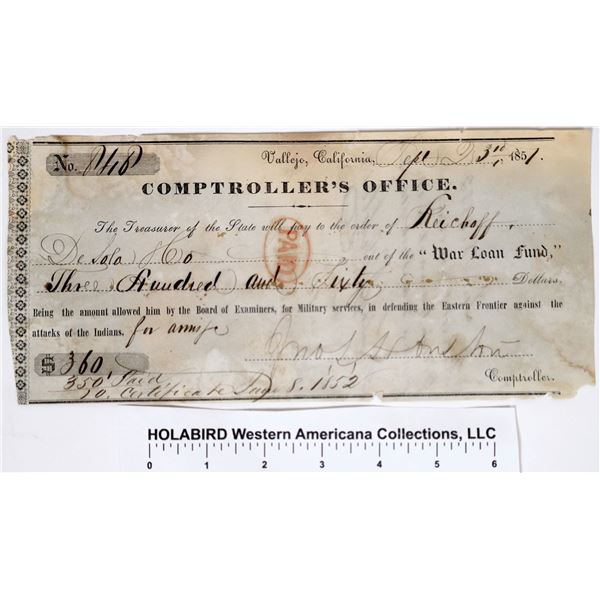 No. 848 Vallejo, California, Sept 23rd, 1851.
COMPTROLLER'S OFFICE.
The Treasurer of the State will pay to the order of Reichoff,
De Sola & Co out of the "War Loan Fund,"
PAID
Three Hundred and Sixty Dollars.
Being the amount allowed him by the Board of Examiners, for Military services, in defending the Eastern Frontier against the
attacks of the Indians. for arms &c
$360
350 Paid
10. Certificate 8. 1852
Comptroller.
HOLABIRD Western Americana Collections, LLC
0 1 2 3 4 5 6